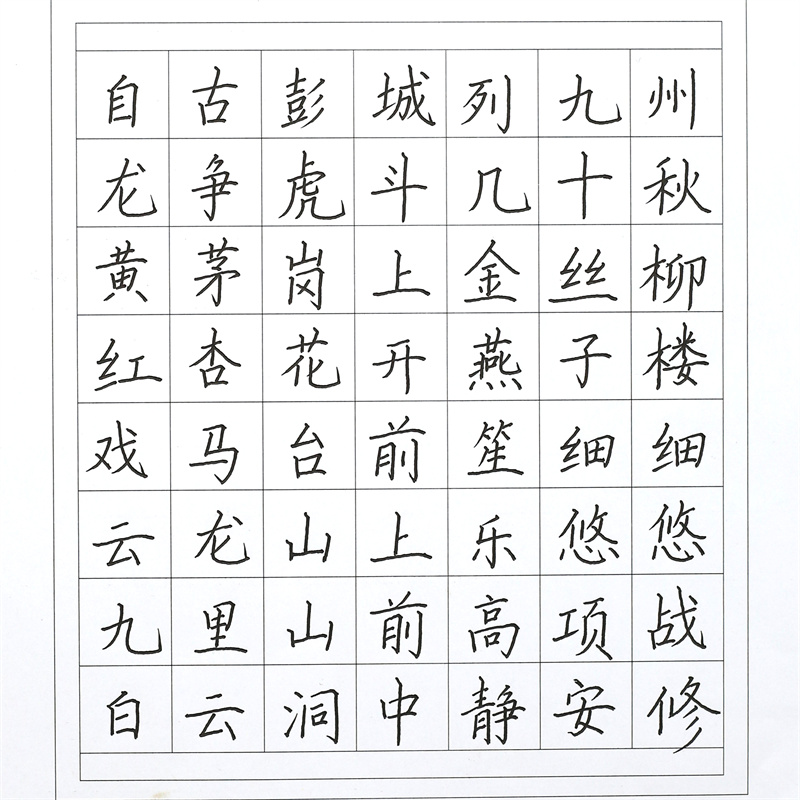 自古彭城列九州
龙争虎斗几十秋
黄茅岗上金丝柳
红杏花开燕子楼
戏马台前笙细细
云龙山上乐悠悠
九里山前高项战
白云洞中静安修